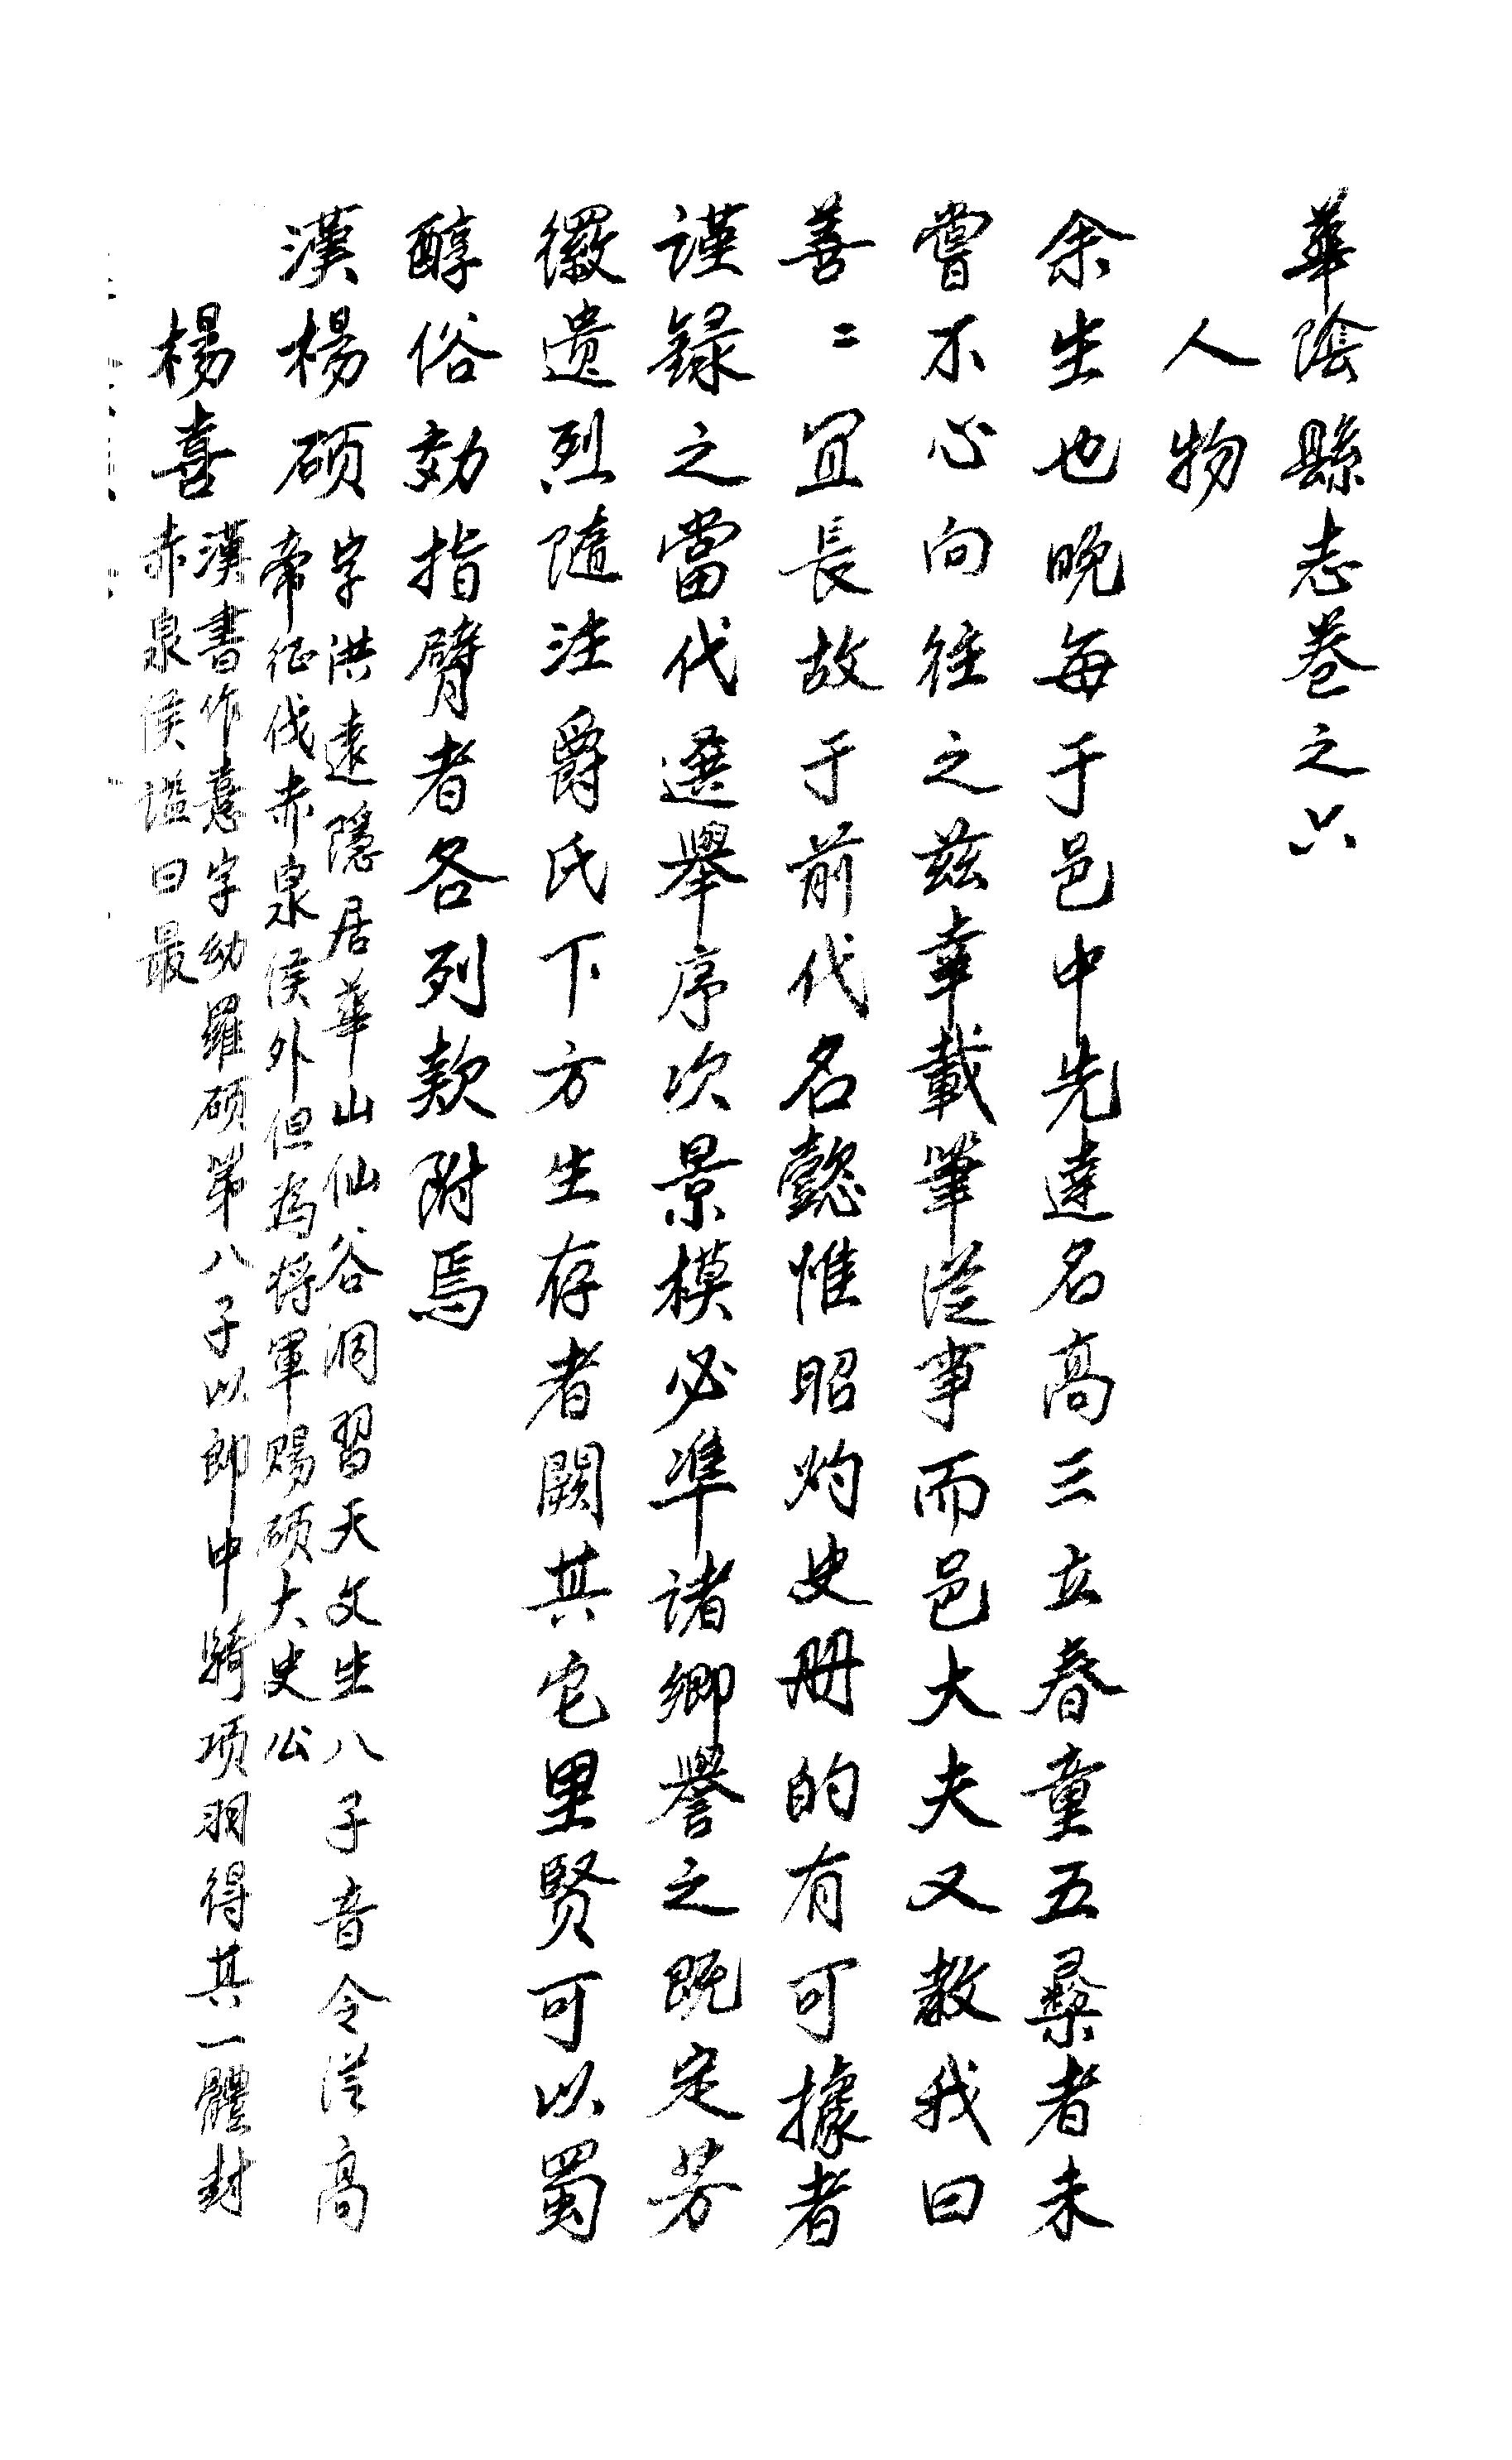 華陰縣志卷之六
人物
余生也晚每于邑中先達名高三立春童五彛者未
嘗不心向往之茲幸載筆從事而邑大夫又敎我曰
善〻宜長故于前代名懿惟昭灼史冊的有可據者
謹錄之當代選舉序次景模必準諸鄉譽之既定芳
徽遺烈隨注爵氏下方生存者闕其它里賢可以蜀
醇俗効指臂者各列款附焉
漢楊碩字洪遠隱居華山仙谷洞習天文生八子音令從高
帝征伐赤泉侯外但為將軍賜碩大史公
楊喜漢書作憙字幼羅碩第八子以郎中騎項羽得其一體封
赤泉侯謚曰嚴